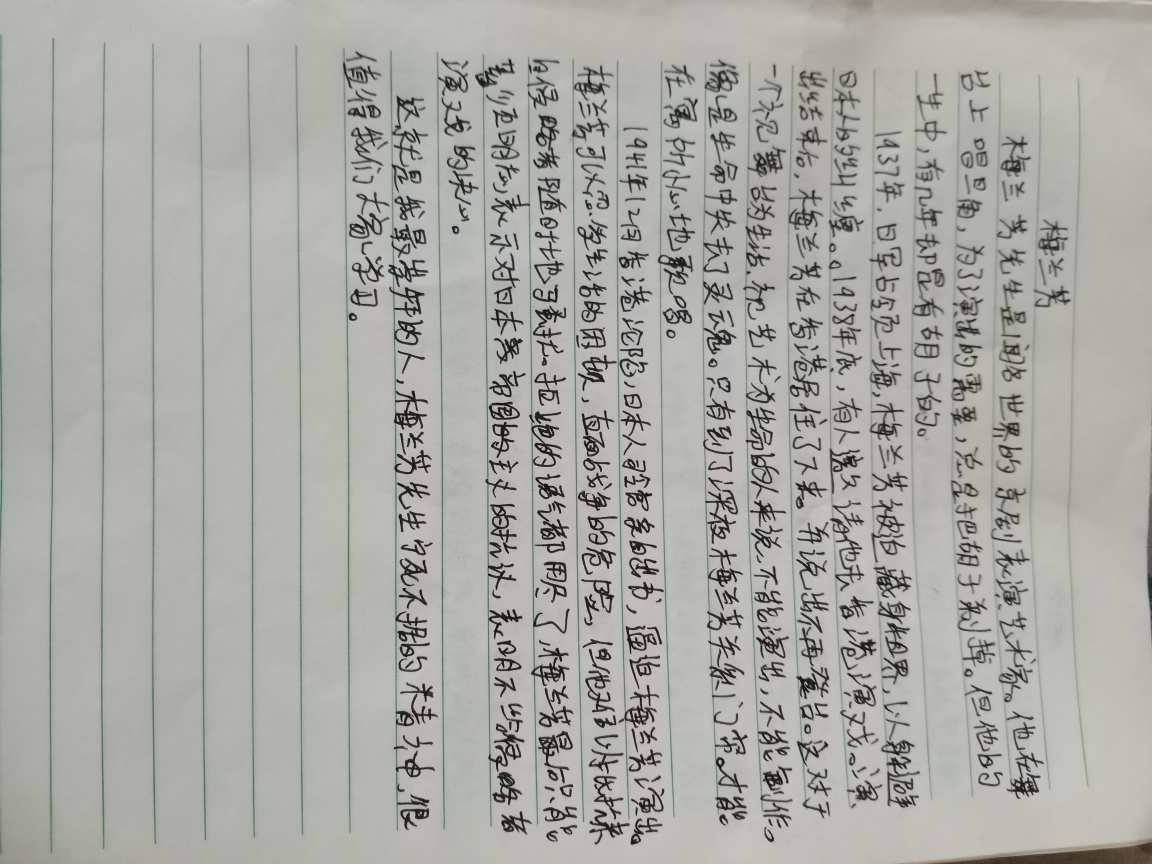 梅兰芳
梅兰芳先生是闻名世界的京剧表演艺术家。他在舞
台上唱旦角，为了演出的需要，总是把胡子剃掉。但他的
一生中，有几年却是有胡子的。
1937年，日军占领上海，梅兰芳被迫藏身租界，以躲避
日本人的纠缠。。1938年底，有人邀请他去香港演戏。演
出结束后，梅兰芳在香港居住了下来。并说出不再登台。这对于
一个视舞台为生活、视艺术为生命的人来说，不能演出，不能创作。
像是生命中失去了灵魂。只有到了深夜梅兰芳关紧门窗。才能
在寓所小心地歌唱。
1941年12月香港沦陷，日本人司官多次出书，逼迫梅兰芳演出。
梅兰芳可以忍受生活的困顿，直面战争的危险，但他难以
侵略者随时地可骚扰。拒绝的语气都用尽了梅兰芳最后只能
蓄须明志，表示对日本帝国主义的抗议，表明不给侵略者
演戏的决心。
这就是我最崇拜的人，梅兰芳先生宁死不挠的精神，很
值得我们大家学习。